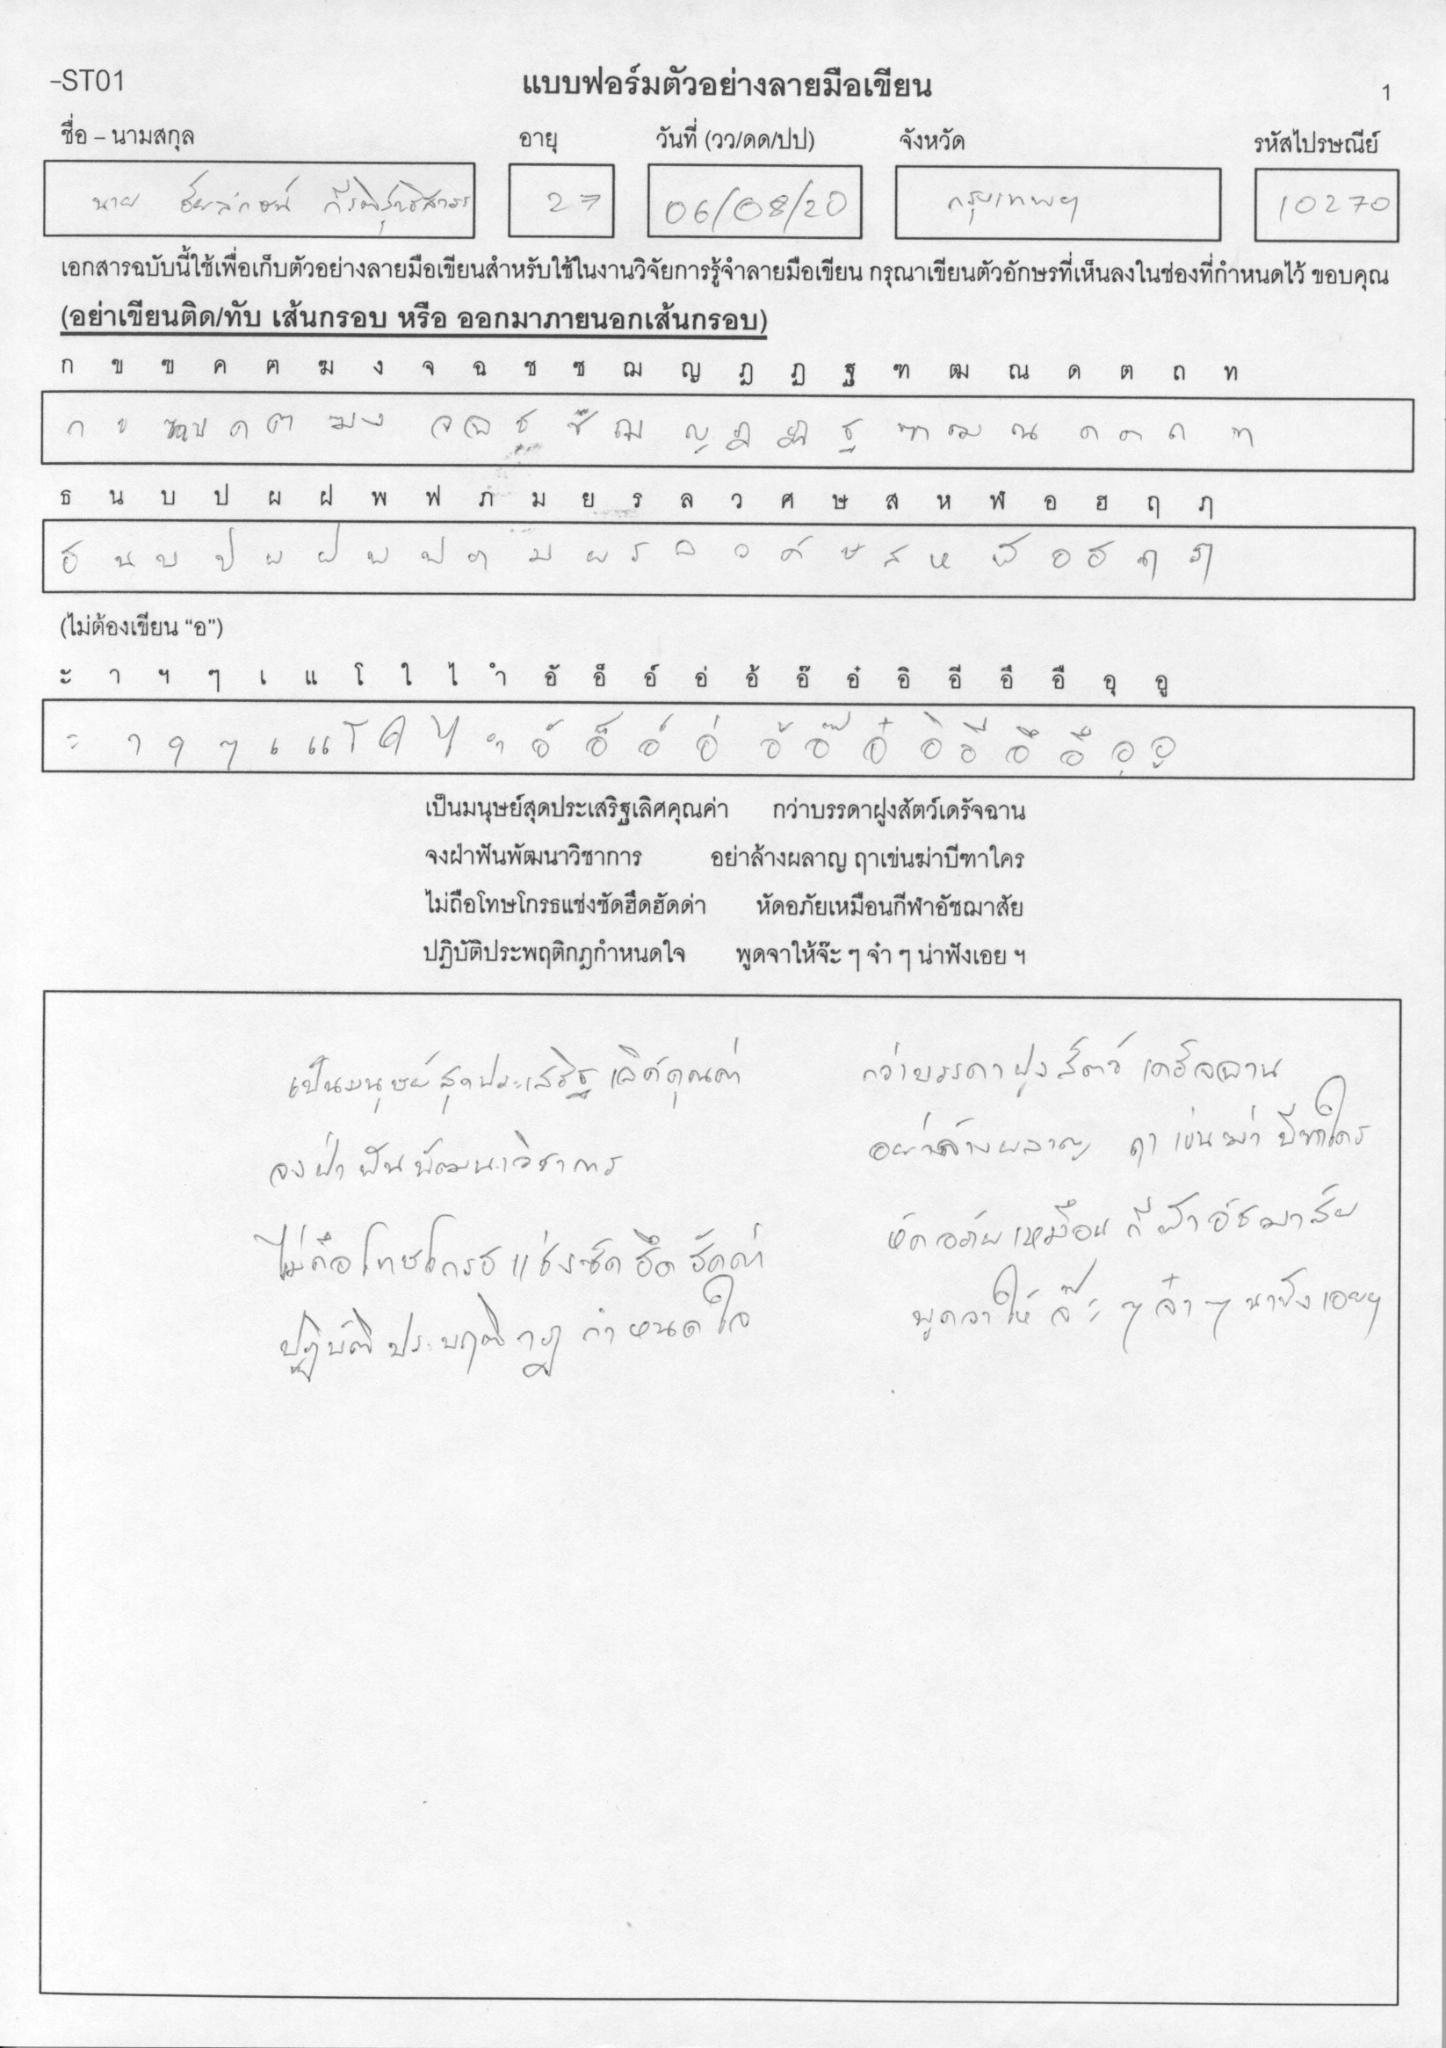 -ST01
แบบฟอร์มตัวอย่างลายมือเขียน
1
ชื่อ – นามสกุล อายุ วันที่ (วว/ดด/ปป) จังหวัด รหัสไปรษณีย์
นาย 27 06/08/20 กรุงเทพฯ 10270
เอกสารฉบับนี้ใช้เพื่อเก็บตัวอย่างลายมือเขียนสำหรับใช้ในงานวิจัยการรู้จำลายมือเขียน กรุณาเขียนตัวอักษรที่เห็นลงในช่องที่กำหนดไว้ ขอบคุณ
(อย่าเขียนติด/ทับ เส้นกรอบ หรือ ออกมาภายนอกเส้นกรอบ)
ก ข ฃ ค ฅ ฆ ง จ ฉ ช ซ ฌ ญ ฎ ฏ ฐ ฑ ฒ ณ ด ต ถ ท
ก ข ค ฅ ฆ ง จ ฉ ช ซ ฌ ญ ฎ ฏ ฐ ฑ ฒ ณ ด ต ถ ท
ธ น บ ป ผ ฝ พ ฟ ภ ม ย ร ล ว ศ ษ ส ห ฬ อ ฮ ฤ ฦ
ธ น บ ป ผ ฝ พ ฟ ภ ม ย ร ล ว ศ ษ ส ห ฬ อ ฮ ฤ ฦ
(ไม่ต้องเขียน “อ”)
ะ า ฯ ๆ เ แ โ ใ ไ ำ อั อ็ อ์ อ่ อ้ อ๊ อ๋ อิ อี อึ อื อุ อู
ะ า ฯ ๆ เ แ โ ใ ไ ำ อั อ็ อ์ อ่ อ้ อ๊ อ๋ อิ อี อึ อื อุ อู
เป็นมนุษย์สุดประเสริฐเลิศคุณค่า กว่าบรรดาฝูงสัตว์เดรัจฉาน
จงฝ่าฟันพัฒนาวิชาการ อย่าล้างผลาญ ฤาเข่นฆ่าบีฑาใคร
ไม่ถือโทษโกรธแช่งซัดฮึดฮัดด่า หัดอภัยเหมือนกีฬาอัชฌาสัย
ปฏิบัติประพฤติกฎกำหนดใจ พูดจาให้จ๊ะ ๆ จ๋า ๆ น่าฟังเอย ฯ
เป็นมนุษย์สุดประเสริฐเลิศคุณค่า กว่าบรรดาฝูงสัตว์เดรัจฉาน
จงฝ่าฟันพัฒนาวิชาการ อย่าล้างผลาญ ฤาเข่นฆ่าบีฑาใคร
ไม่ถือโทษโกรธแช่งซัดฮึดฮัดด่า หัดอภัยเหมือนกีฬาอัชฌาสัย
ปฏิบัติประพฤติกฎกำหนดใจ พูดจาให้จ๊ะ ๆ จ๋า ๆ น่าฟังเอยฯ